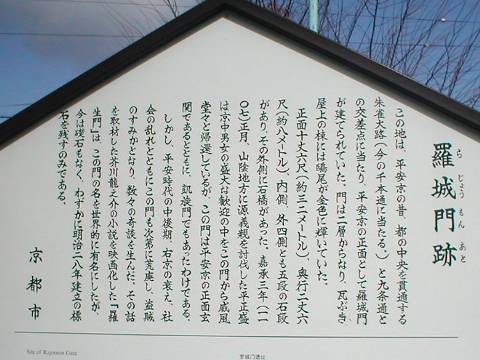 羅城門跡
ら じょう もん あと
この地は、平安京の昔、都の中央を貫通する
朱雀大路(今の千本通に当たる。)と九条通と
の交差点に当たり、平安京の正面として羅城門
が建てられていた。門は二層からなり、瓦ぶき
屋上の棟には鴟尾が金色に輝いていた。
正面十丈六尺(約三二メートル)、奥行二丈六
尺(約八メートル)、内側、外側とも五段の石段
があり、その外側に石橋があった。嘉承三年(一一
〇七)正月、山陰地方に源義親を討伐した平正盛
は京中男女の盛大な歓迎の中をこの門から威風
堂々と帰還しているが、この門は平安京の正面玄
関であるとともに、凱旋門でもあったわけである。
しかし、平安時代の中後期、右京の衰え、社
会の乱れとともにこの門も次第に荒廃し、盗賊
のすみかとなり、数々の奇談を生んだ。その話
を取材した芥川龍之介の小説を映画化した「羅
生門」は、この門の名を世界的に有名にしたが、
今は礎石もなく、わずかに明治二八年建立の標
石を残すのみである。
京都市
Site of Rajomon Gate
罗城门遗址